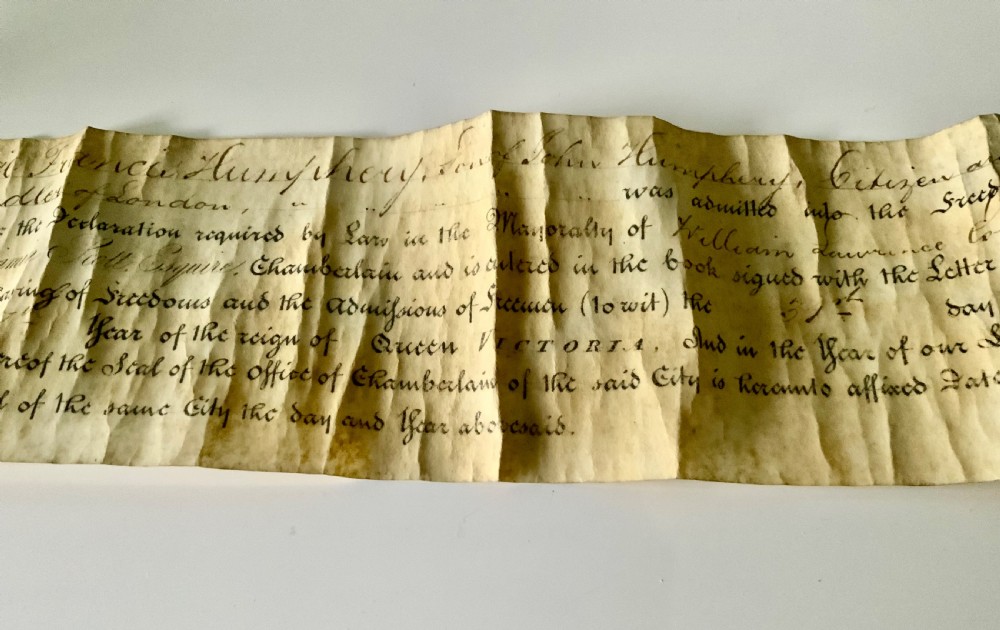 Francis Humphery, Son of John Humphery, Citizen an
dler of London, " " " " was admitted into the Freed
the Declaration required by Law in the Mayoralty of William Lawrence
Scott, Esquire, Chamberlain and is entered in the book signed with the Letter
of Freedoms and the Admissions of Freemen (to wit) the 31st day
Year of the reign of Queen VICTORIA, And in the Year of our L
reof the Seal of the Office of Chamberlain of the said City is hereunto affixed Date
l of the same City the day and Year abovesaid.